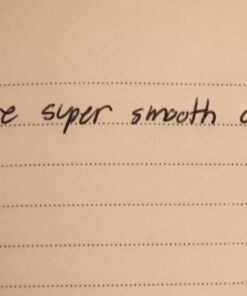 e super smooth